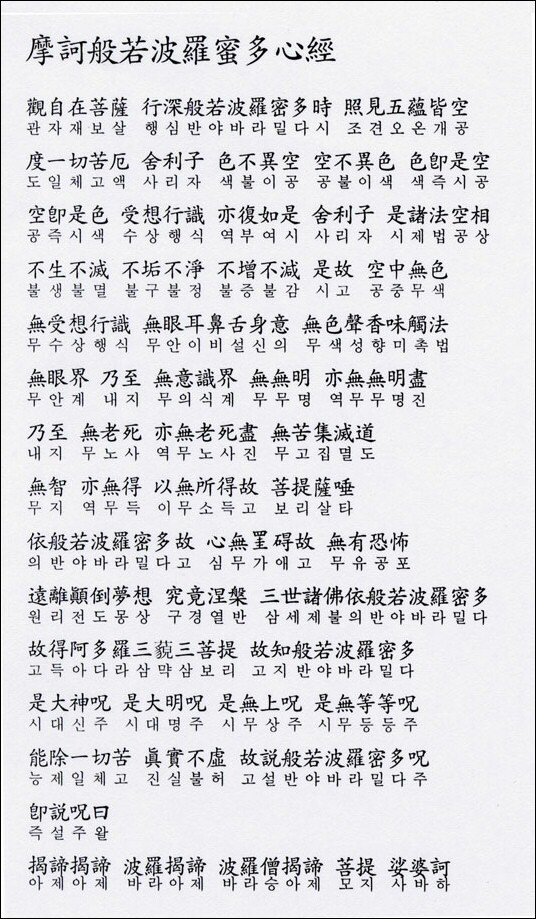 摩訶般若波羅蜜多心經
觀自在菩薩 行深般若波羅密多時 照見五蘊皆空
관자재보살 행심반야바라밀다시 조견오온개공
度一切苦厄 舍利子 色不異空 空不異色 色卽是空
도일체고액 사리자 색불이공 공불이색 색즉시공
空卽是色 受想行識 亦復如是 舍利子 是諸法空相
공즉시색 수상행식 역부여시 사리자 시제법공상
不生不滅 不垢不淨 不增不減 是故 空中無色
불생불멸 불구부정 부증불감 시고 공중무색
無受想行識 無眼耳鼻舌身意 無色聲香味觸法
무수상행식 무안이비설신의 무색성향미촉법
無眼界 乃至 無意識界 無無明 亦無無明盡
무안계 내지 무의식계 무무명 역무무명진
乃至 無老死 亦無老死盡 無苦集滅道
내지 무노사 역무노사진 무고집멸도
無智 亦無得 以無所得故 菩提薩唾
무지 역무득 이무소득고 보리살타
依般若波羅密多故 心無罣碍故 無有恐怖
의반야바라밀다고 심무가애고 무유공포
遠離顚倒夢想 究竟涅槃 三世諸佛依般若波羅密多
원리전도몽상 구경열반 삼세제불의반야바라밀다
故得阿多羅三藐三菩提 故知般若波羅密多
고득아다라삼먁삼보리 고지반야바라밀다
是大神呪 是大明呪 是無上呪 是無等等呪
시대신주 시대명주 시무상주 시무등등주
能除一切苦 眞實不虛 故說般若波羅密多呪
능제일체고 진실불허 고설반야바라밀다주
卽説呪曰
즉설주왈
揭諦揭諦 波羅揭諦 波羅僧揭諦 菩提 娑婆訶
아제아제 바라아제 바라승아제 모지 사바하